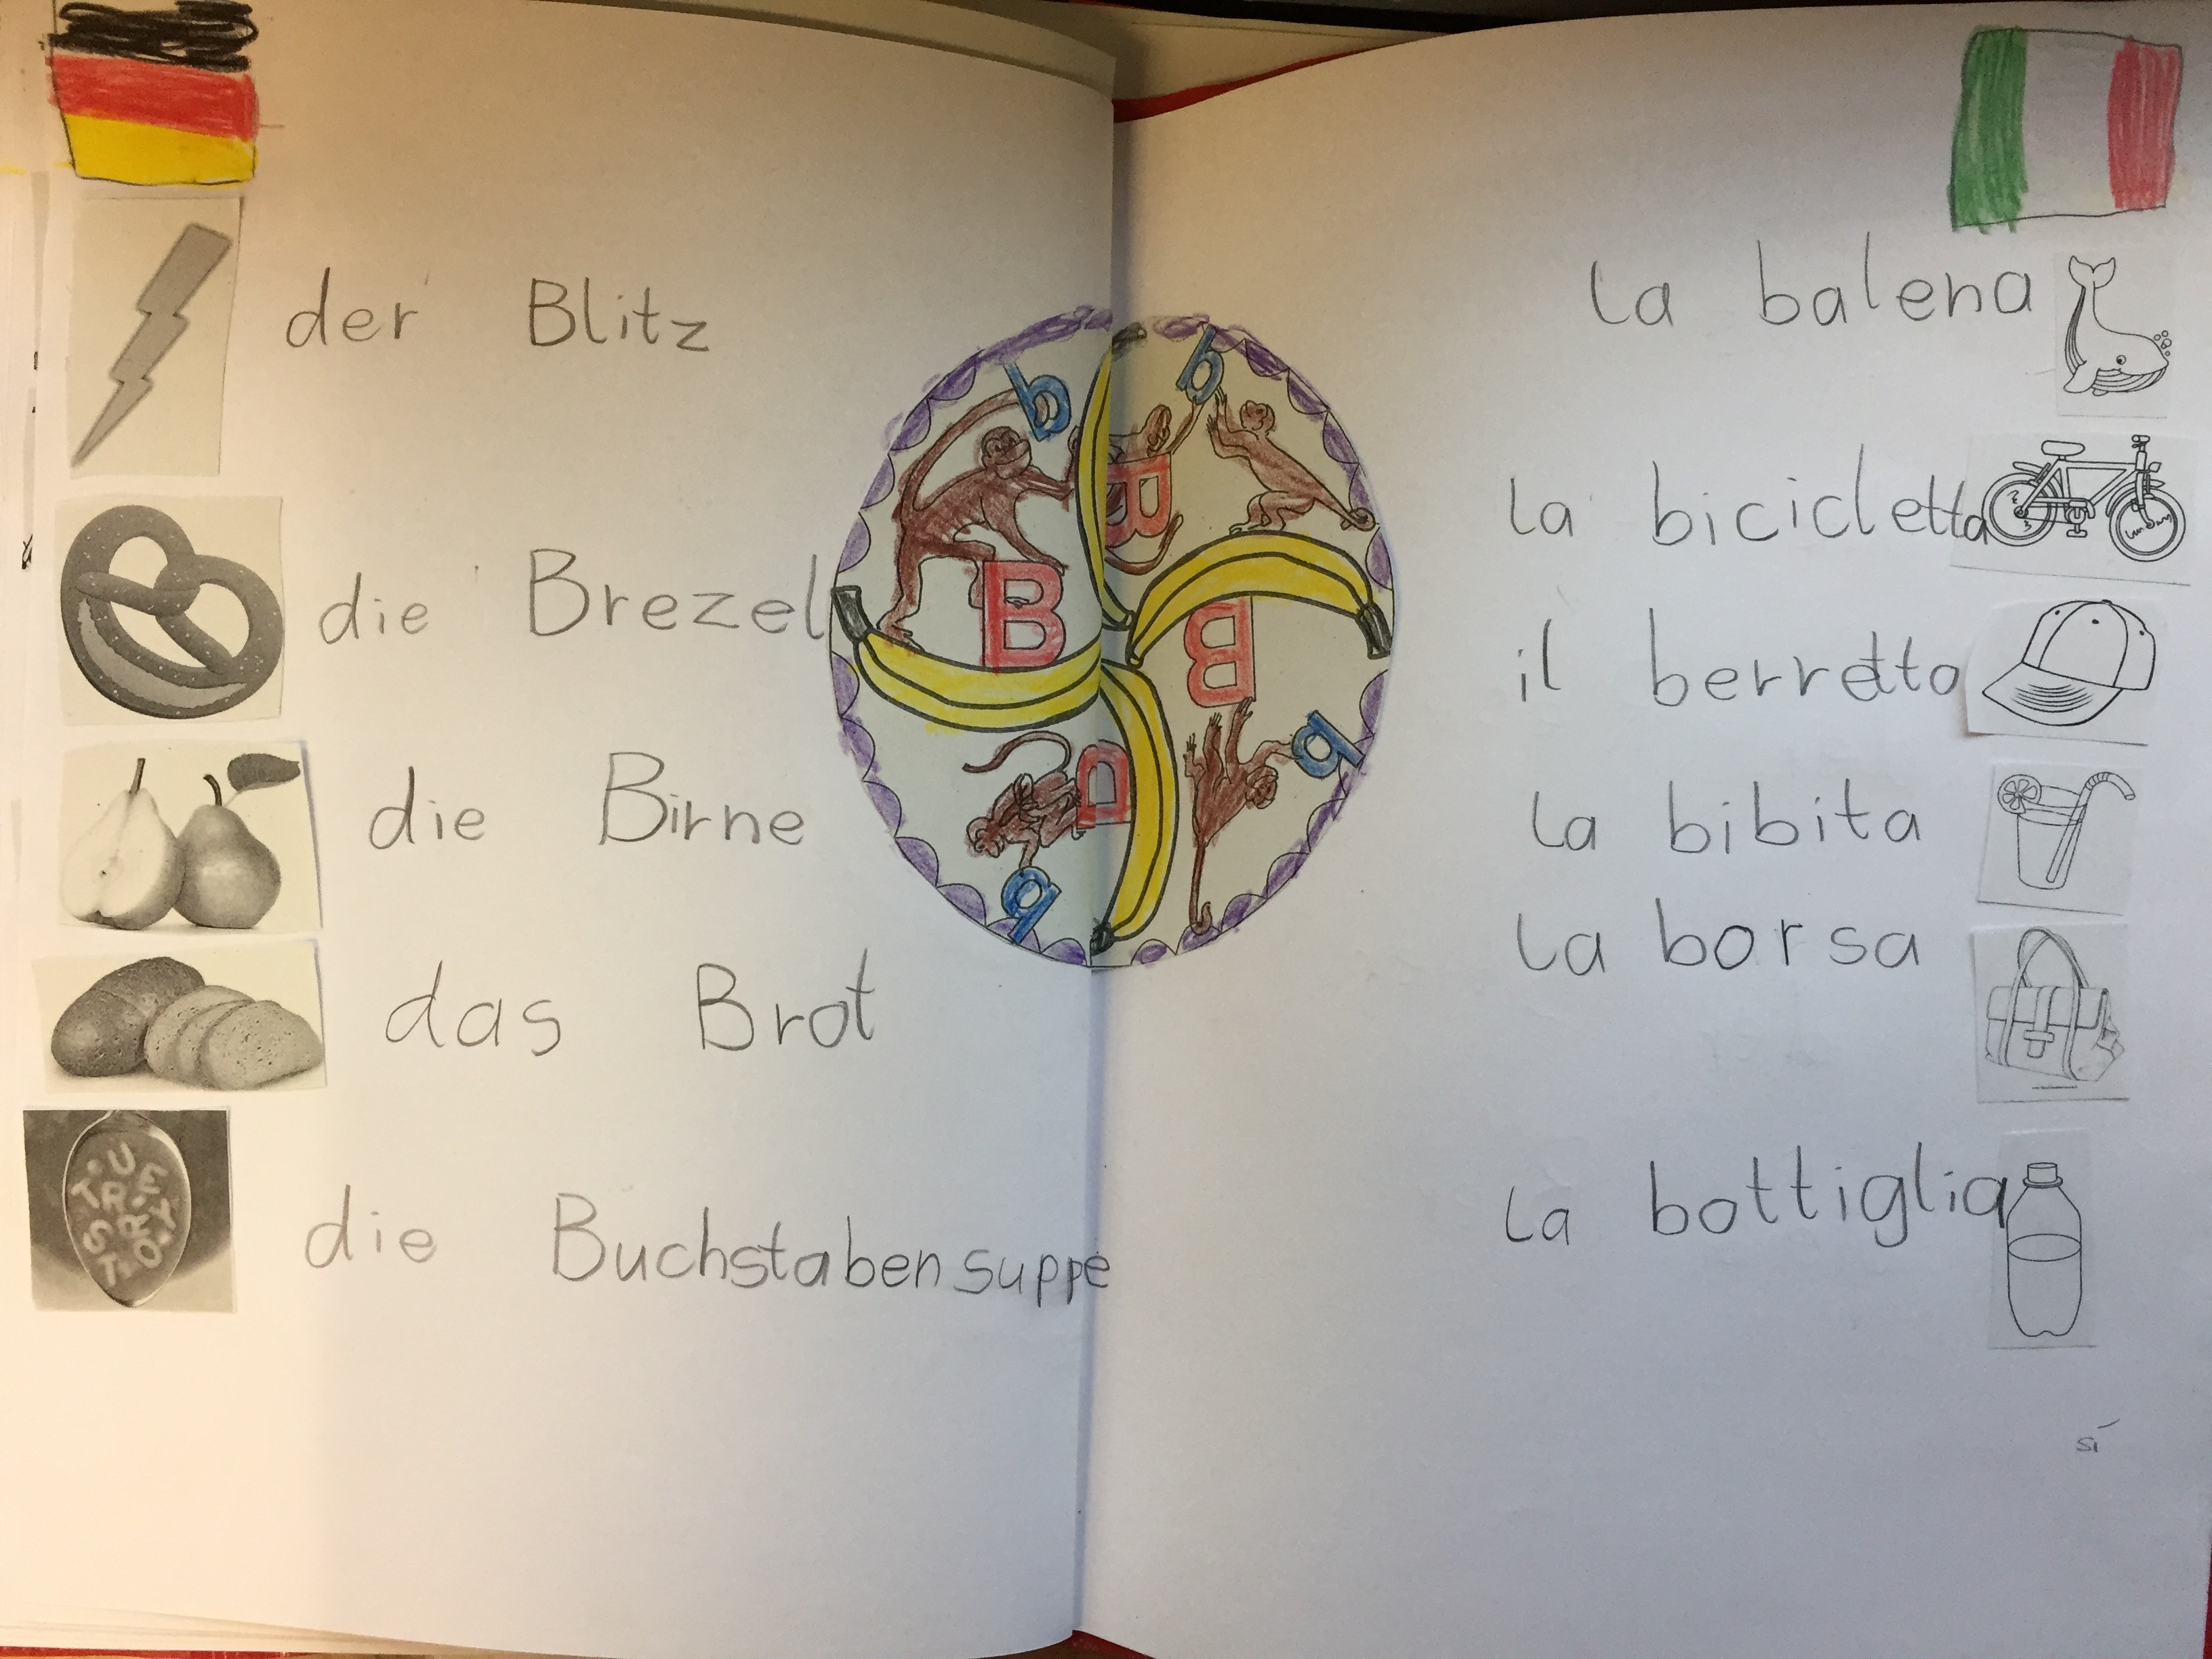 der Blitz
die Brezel
die Birne
das Brot
die Buchstabensuppe
b
B
b
B
b
B
b
B
la balena
la bicicletta
il berretto
la bibita
la borsa
la bottiglia
sí